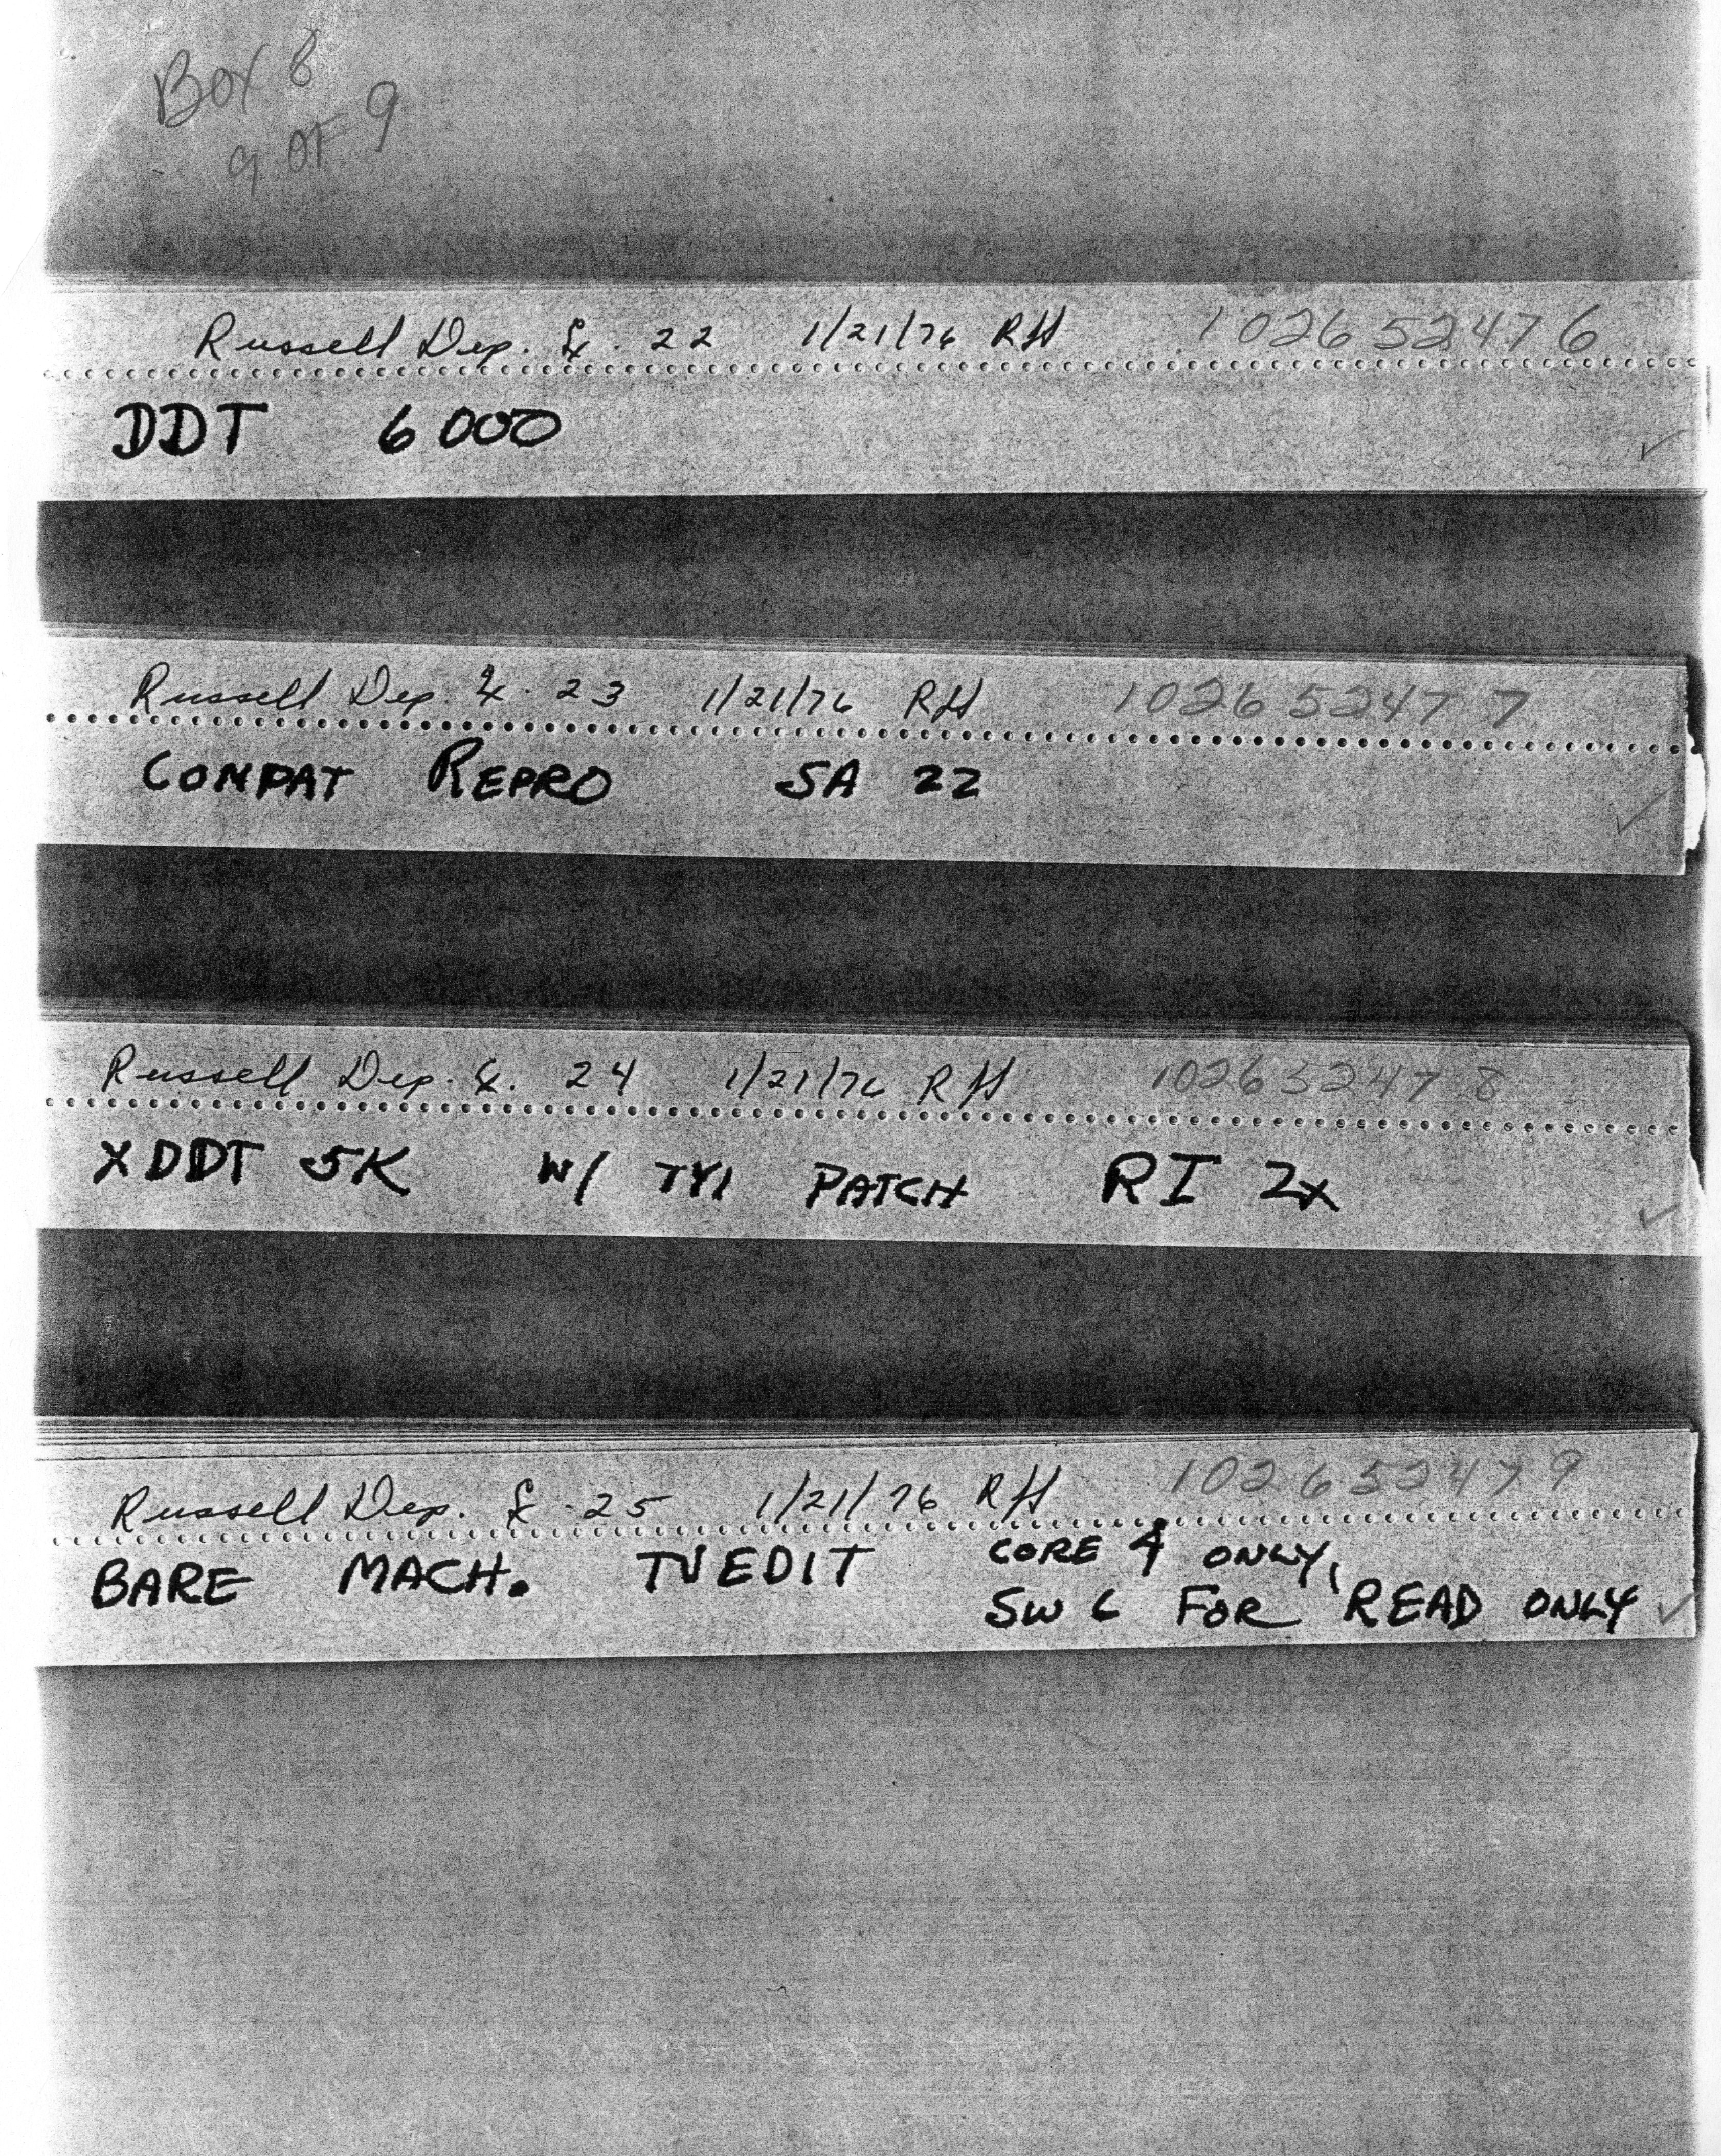 Box 8
9 OF 9
Russell Dep. Ex. 22 1/21/76 RH 102652476
DDT 6000
Russell Dep. Ex. 23 1/21/76 RH 102652477
COMPAT REPRO SA 22
Russell Dep. Ex. 24 1/21/76 RH 102652478
XDDT 5K W/ TYI PATCH RI 2x
Russell Dep. Ex. 25 1/21/76 RH 102652479
BARE MACH. TVEDIT CORE 4 ONLY,
SW 6 FOR READ ONLY